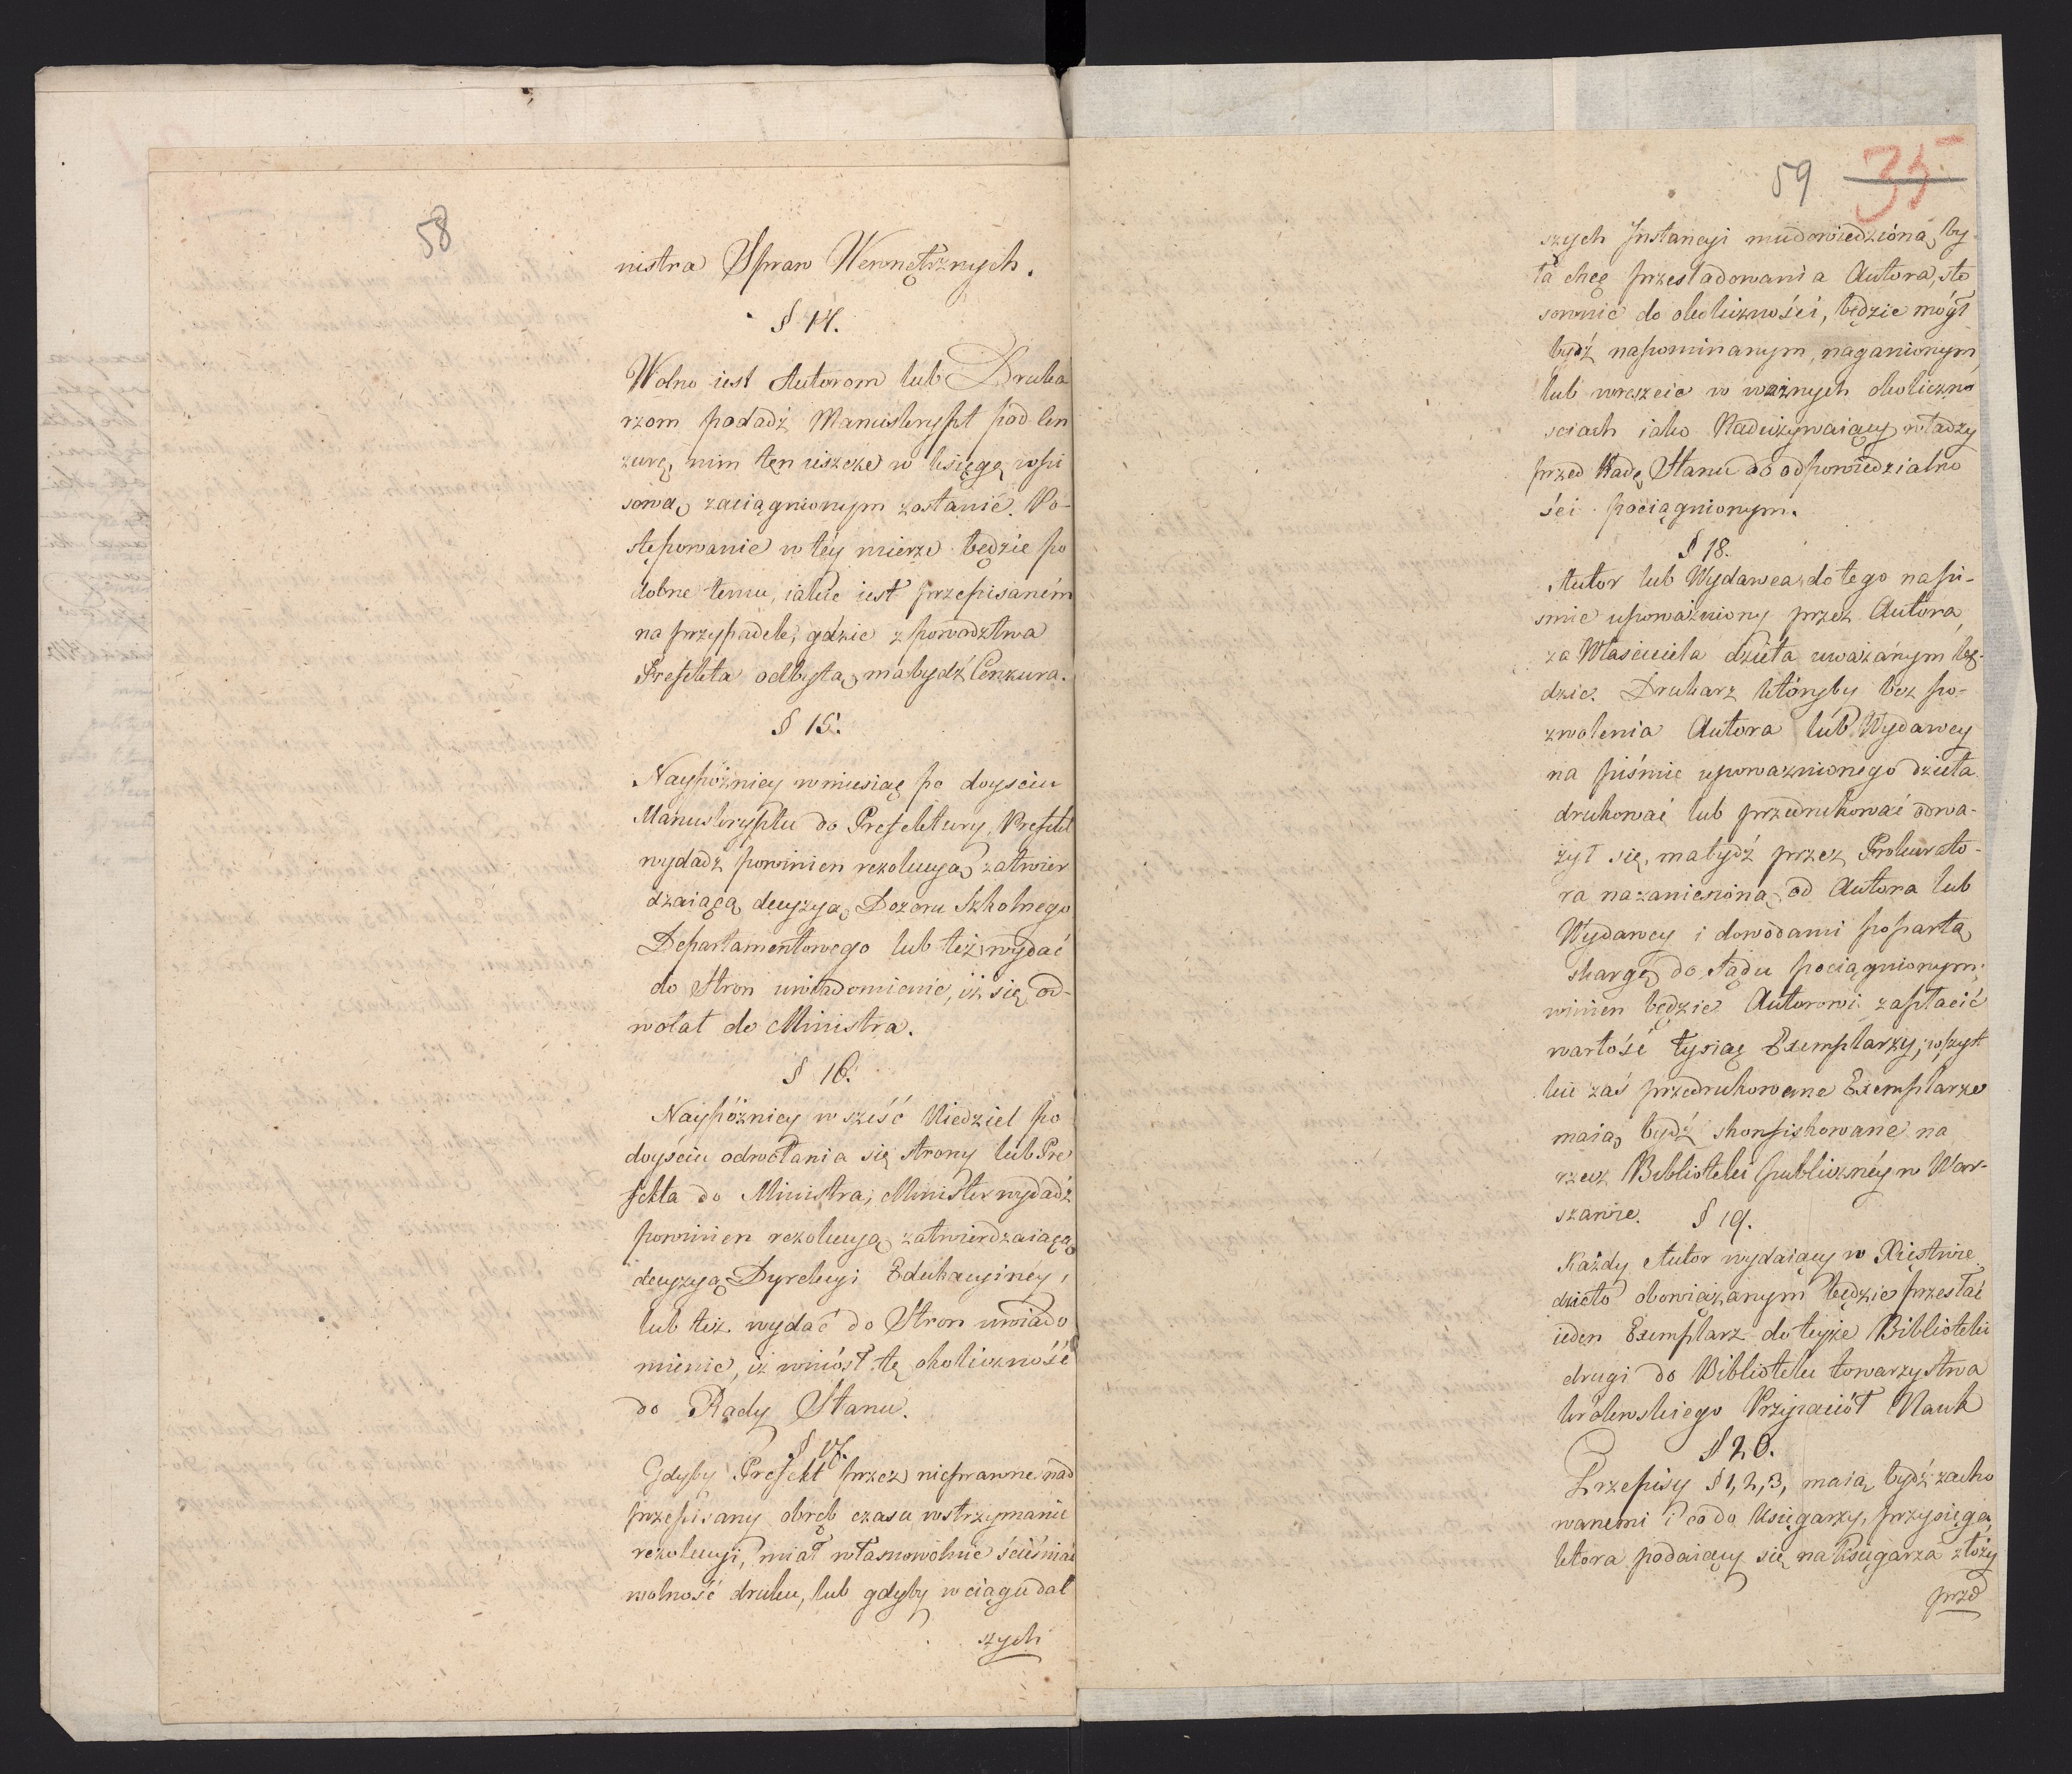 58
nistra Spraw Wewnętrznych.
§ 14.
Wolno iest Autorom lub Druka
rzom podadź Manuskrypt pod Cen
zurę, nim ten ieszcze w księgę wpi
sową zaciągnionym zostanie. Po-
stępowanie w téy mierze będzie po
dobne temu, iakie iest przepisaném
na przypadek, gdzie z powodztwa
Prefekta odbytą ma bydź Cenzura.
§ 15.
Naypóźniey w miesiąc po doyściu
Manuskryptu do Prefektury, Prefekt
wydadź powinien rezolucyą zatwier
dzaiącą decyzyą Dozoru Szkolnego
Departamentowego lub też wydać
do Stron uwiadomienie, iż się od-
wołał do Ministra.
§ 16.
Naypóźniey w sześć Niedziel po
doyściu odwołania się strony lub Pre
fekta do Ministra, Minister wydadź
powinien rezolucyą zatwierdzaiącą
decyzyą Dyrekcyi Edukacyinéy,
lub też wydać do Stron uwiado
mienie, iż wniósł tę okoliczność
do Rady Stanu.
§ 17.
Gdyby Prefekt przez nieprawne nad
przepisany obręb czasu wstrzymanie
rezolucyi, miał własnowolnie ścieśniać
wolność druku, lub gdyby w ciągu dal
szych
59 35
szych Instancyi mu dowiedzioną by
ła chęć prześladowania Autora, sto
sownie do okoliczności, będzie mógł
bydź napominanym, naganionym,
lub wreszcie w ważnych okoliczno
sciach iako Nadużywaiący władzy
przed Radę Stanu do odpowiedzialno
ści pociągnionym.
§ 18.
Autor lub Wydawca do tego na pi-
smie upoważniony przez Autora,
za Właściciela dzieła uważanym bę-
dzie. Drukarz któryby bez po-
zwolenia Autora lub Wydawcy
na piśmie upoważnionego dzieła
drukować lub przedrukować odwa-
żył się, ma bydź przez Prokurato-
ra na zaniesioną od Autora lub
Wydawcy i dowodami popartą
skargę do Sądu pociągnionym;
winien będzie Autorowi zapłacić
wartość tysiąc Exemplarzy; wszyst
kie zaś przedrukowane Exemplarze
maią bydź skonfiskowane na
rzecz Biblioteki publicznéy w War-
szawie.
§ 19.
Każdy Autor wydaiący w Xięstwie
dzieło obowiązanym będzie przesłać
ieden Exemplarz do teyże Biblioteki
drugi do Biblioteki towarzystwa
królewskiego Przyiaciół Nauk
§ 20.
Przepisy § 1, 2, 3, maią bydź zacho
wanemi i co do Księgarzy, przysięgą,
która podaiący się na Księgarza złoży
przed